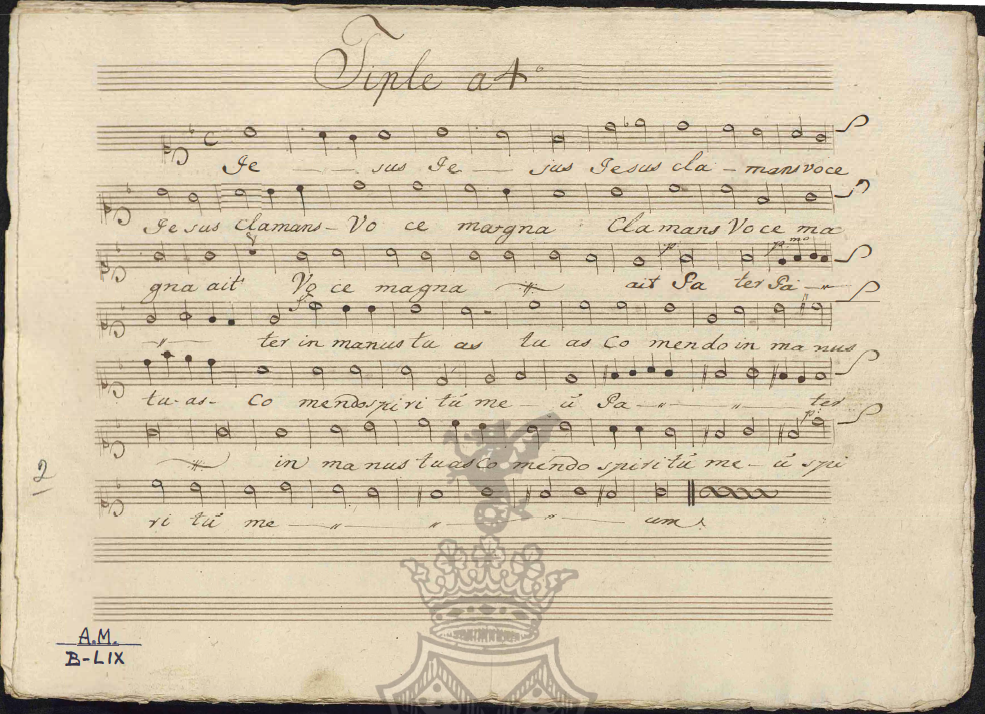 Tiple a 4º
Je sus Je sus Jesus cla - mans voce
Jesus clamans - Vo ce margna Clamans Voce ma
gna ait Vo ce magna ait Pa ter Pa
ter in manus tu as tu as Co mendo in ma nus
tu - as - Co mendo spiri tú me - ú Pa ter
in ma nus tuas Co mendo spiri tú me - ú spi
ri tú me um
2
A.M.
B-LIX